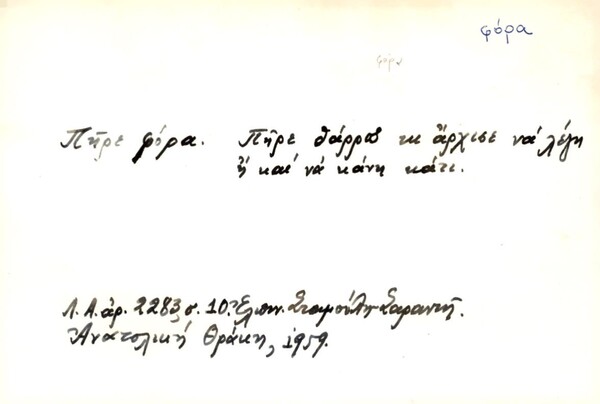 φόρα
φόρα
Πῆρε φόρα. Πῆρε θάρρος κι ἄρχισε νά λέγη
ἤ καί νά κάνη κάτι.
Λ.Α. ἀρ. 2283, σ. 10. Ἐλπιν. Σταμούλη-Σαραντῆ.
Ἀνατολική Θράκη, 1959.